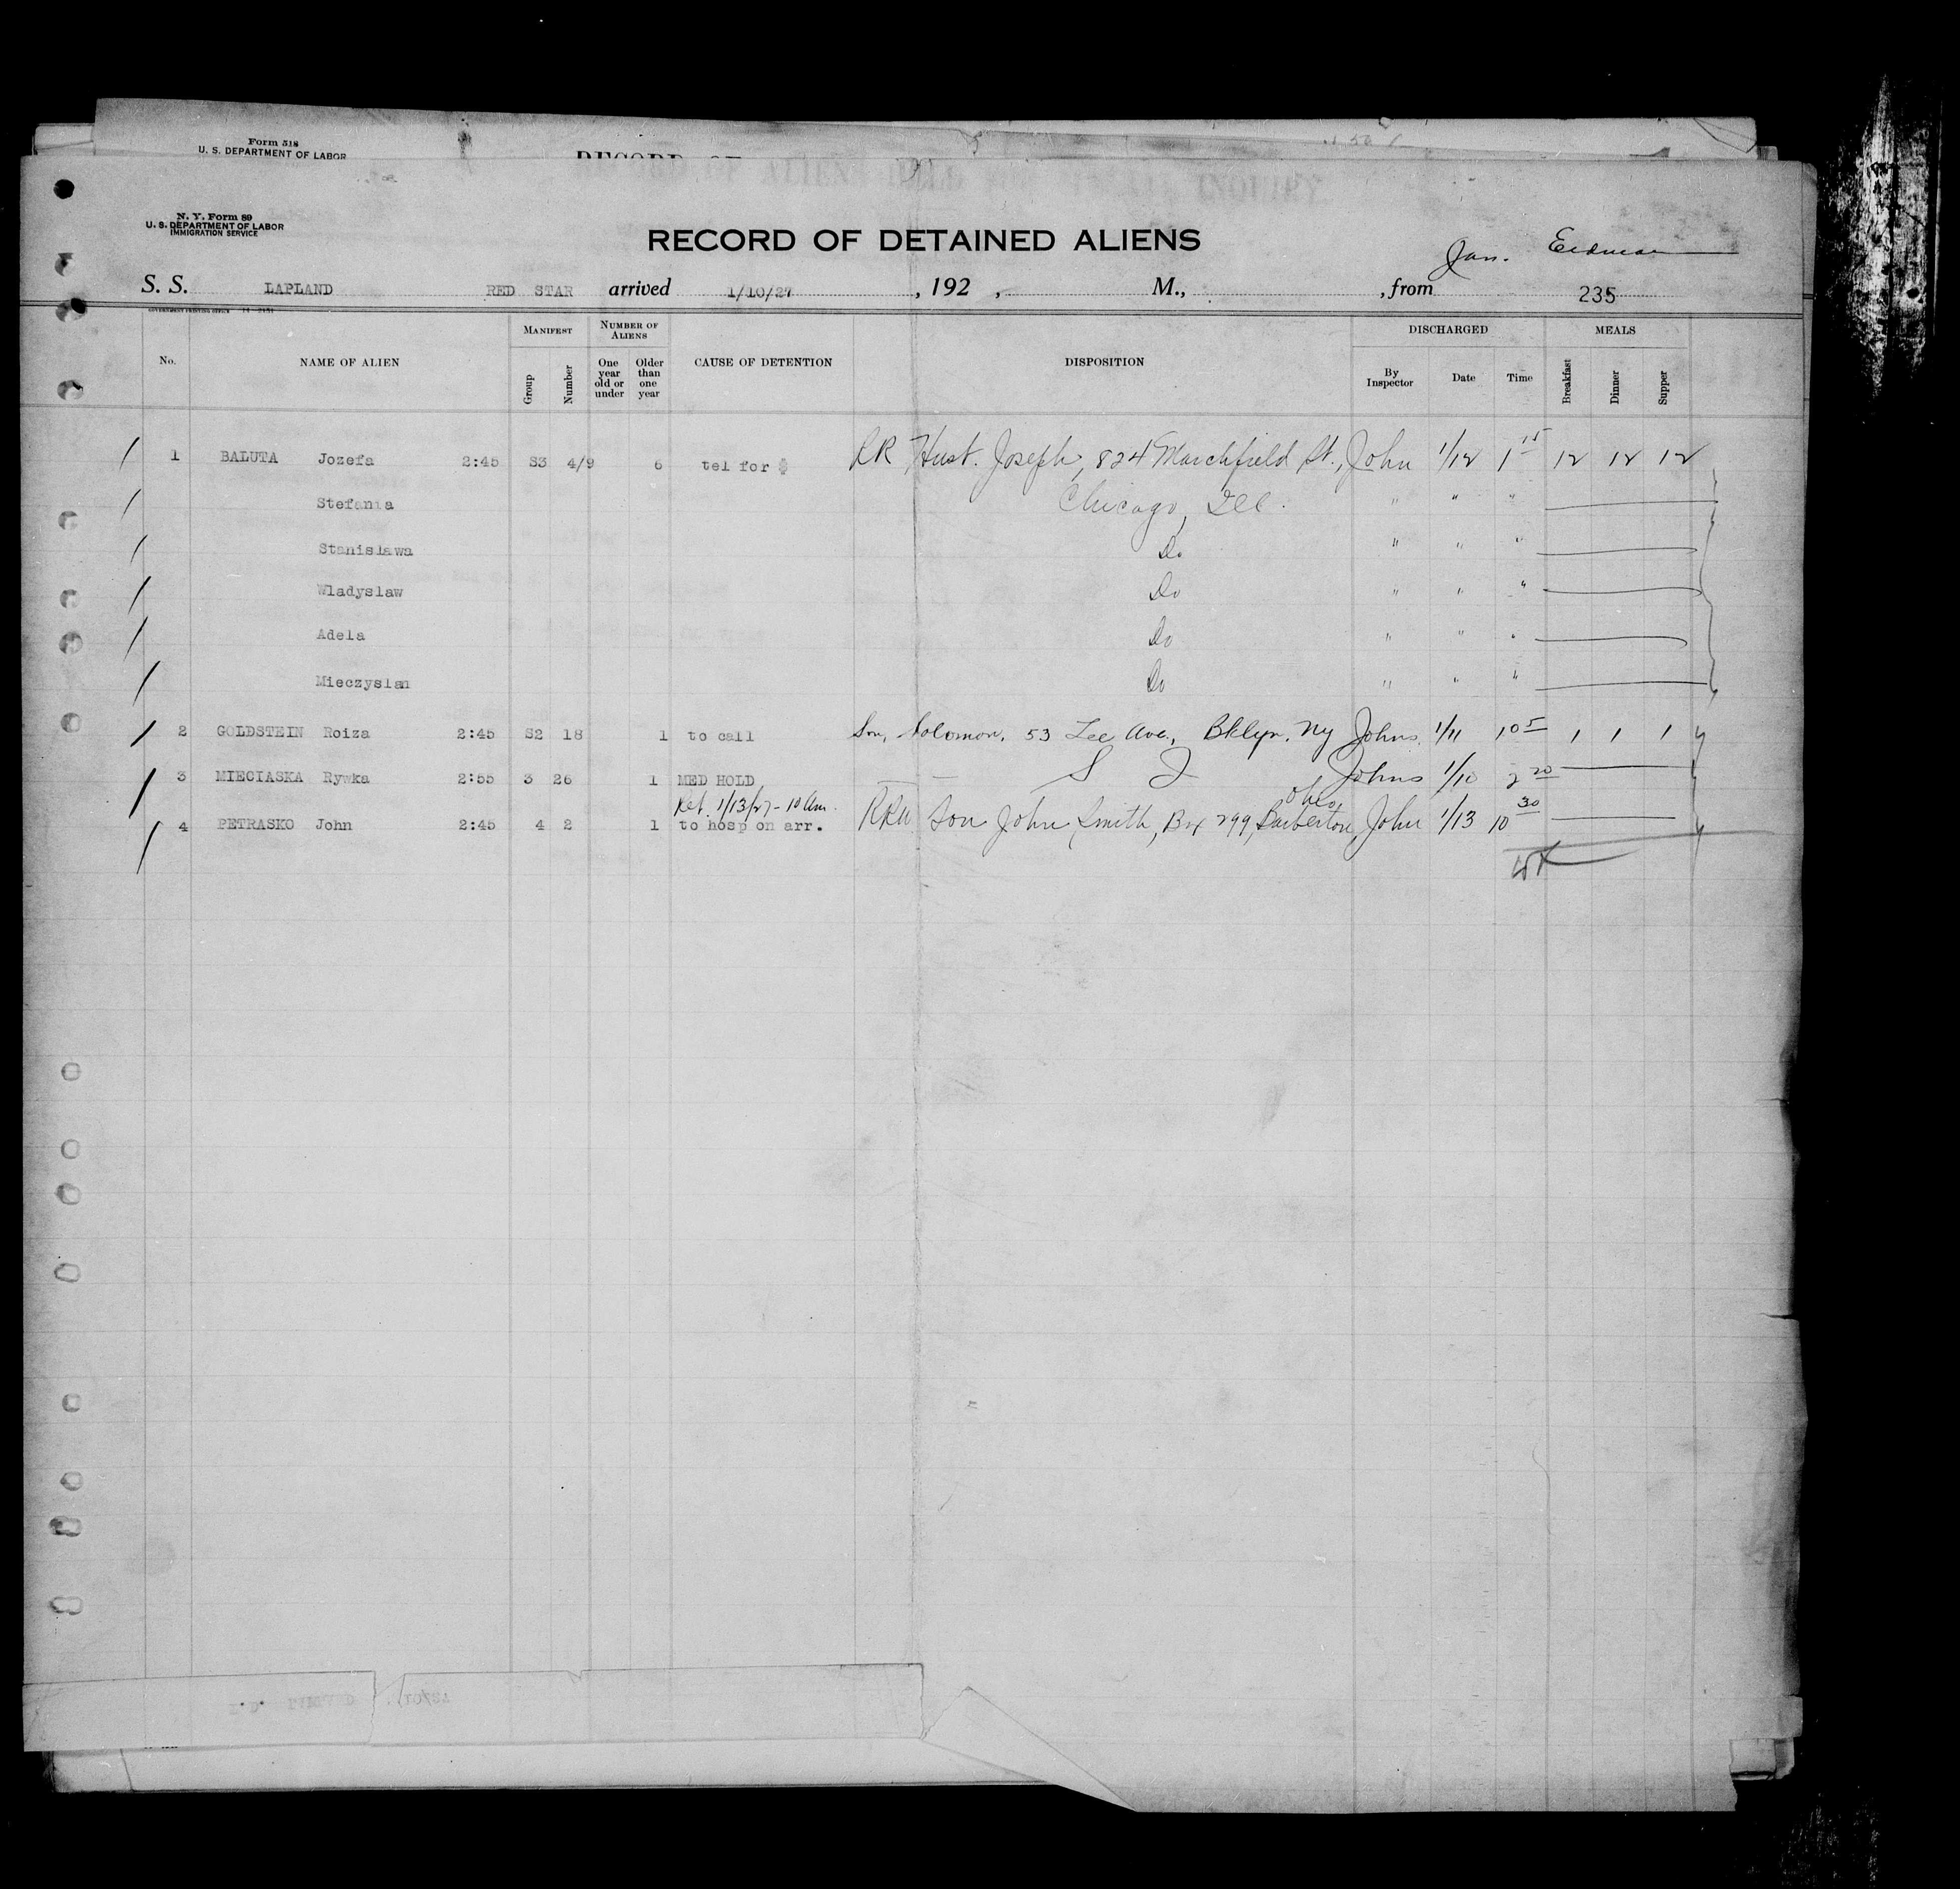 Form 518
U. S. DEPARTMENT OF LABOR
RECORD OF ALIENS HELD FOR SPECIAL INQUIRY
N. Y. Form 89
U. S. DEPARTMENT OF LABOR
IMMIGRATION SERVICE
RECORD OF DETAINED ALIENS
Jan. Erdman
S. S. LAPLAND RED STAR arrived 1/10/27 , 192 , M., , from 235
GOVERNMENT PRINTING OFFICE
No. NAME OF ALIEN MANIFEST Group Number NUMBER OF ALIENS One year old or under Older than one year CAUSE OF DETENTION DISPOSITION DISCHARGED By Inspector Date Time MEALS Breakfast Dinner Supper
1 BALUTA Jozefa 2:45 S3 4/9 6 tel for $ RR Husb. Joseph, 824 Marchfield St., John 1/12 1 15 12 12 12
Stefania Chicago, Ill. " " "
Stanislawa Do " " "
Wladyslaw Do " " "
Adela Do " " "
Mieczyslaw Do " " "
2 GOLDSTEIN Roiza 2:45 S2 18 1 to call Son, Solomon, 53 Lee Ave., Bklyn. NY Johns 1/11 10 5 1 1 1
3 MIECIASKA Rywka 2:55 3 26 1 MED HOLD S I Johns 1/10 2 20
Ret. 1/13/27 - 10 Am. Ohio
4 PETRASKO John 2:45 4 2 1 to hosp on arr. RRW Son John Smith, Box 299, Barberton, John 1/13 10 30